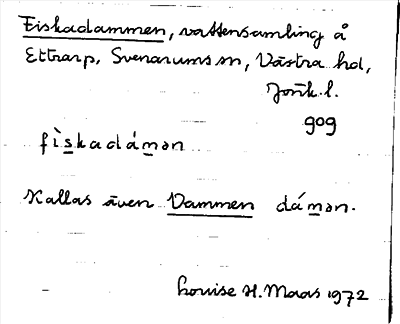 Fiskadammen, vattensamling å
Ettrarp, Svenarums sn, Västra hd,
Jönk. l.
gog
fìskadámən
Kallas även Dammen dámən.
Louise H. Maas 1972